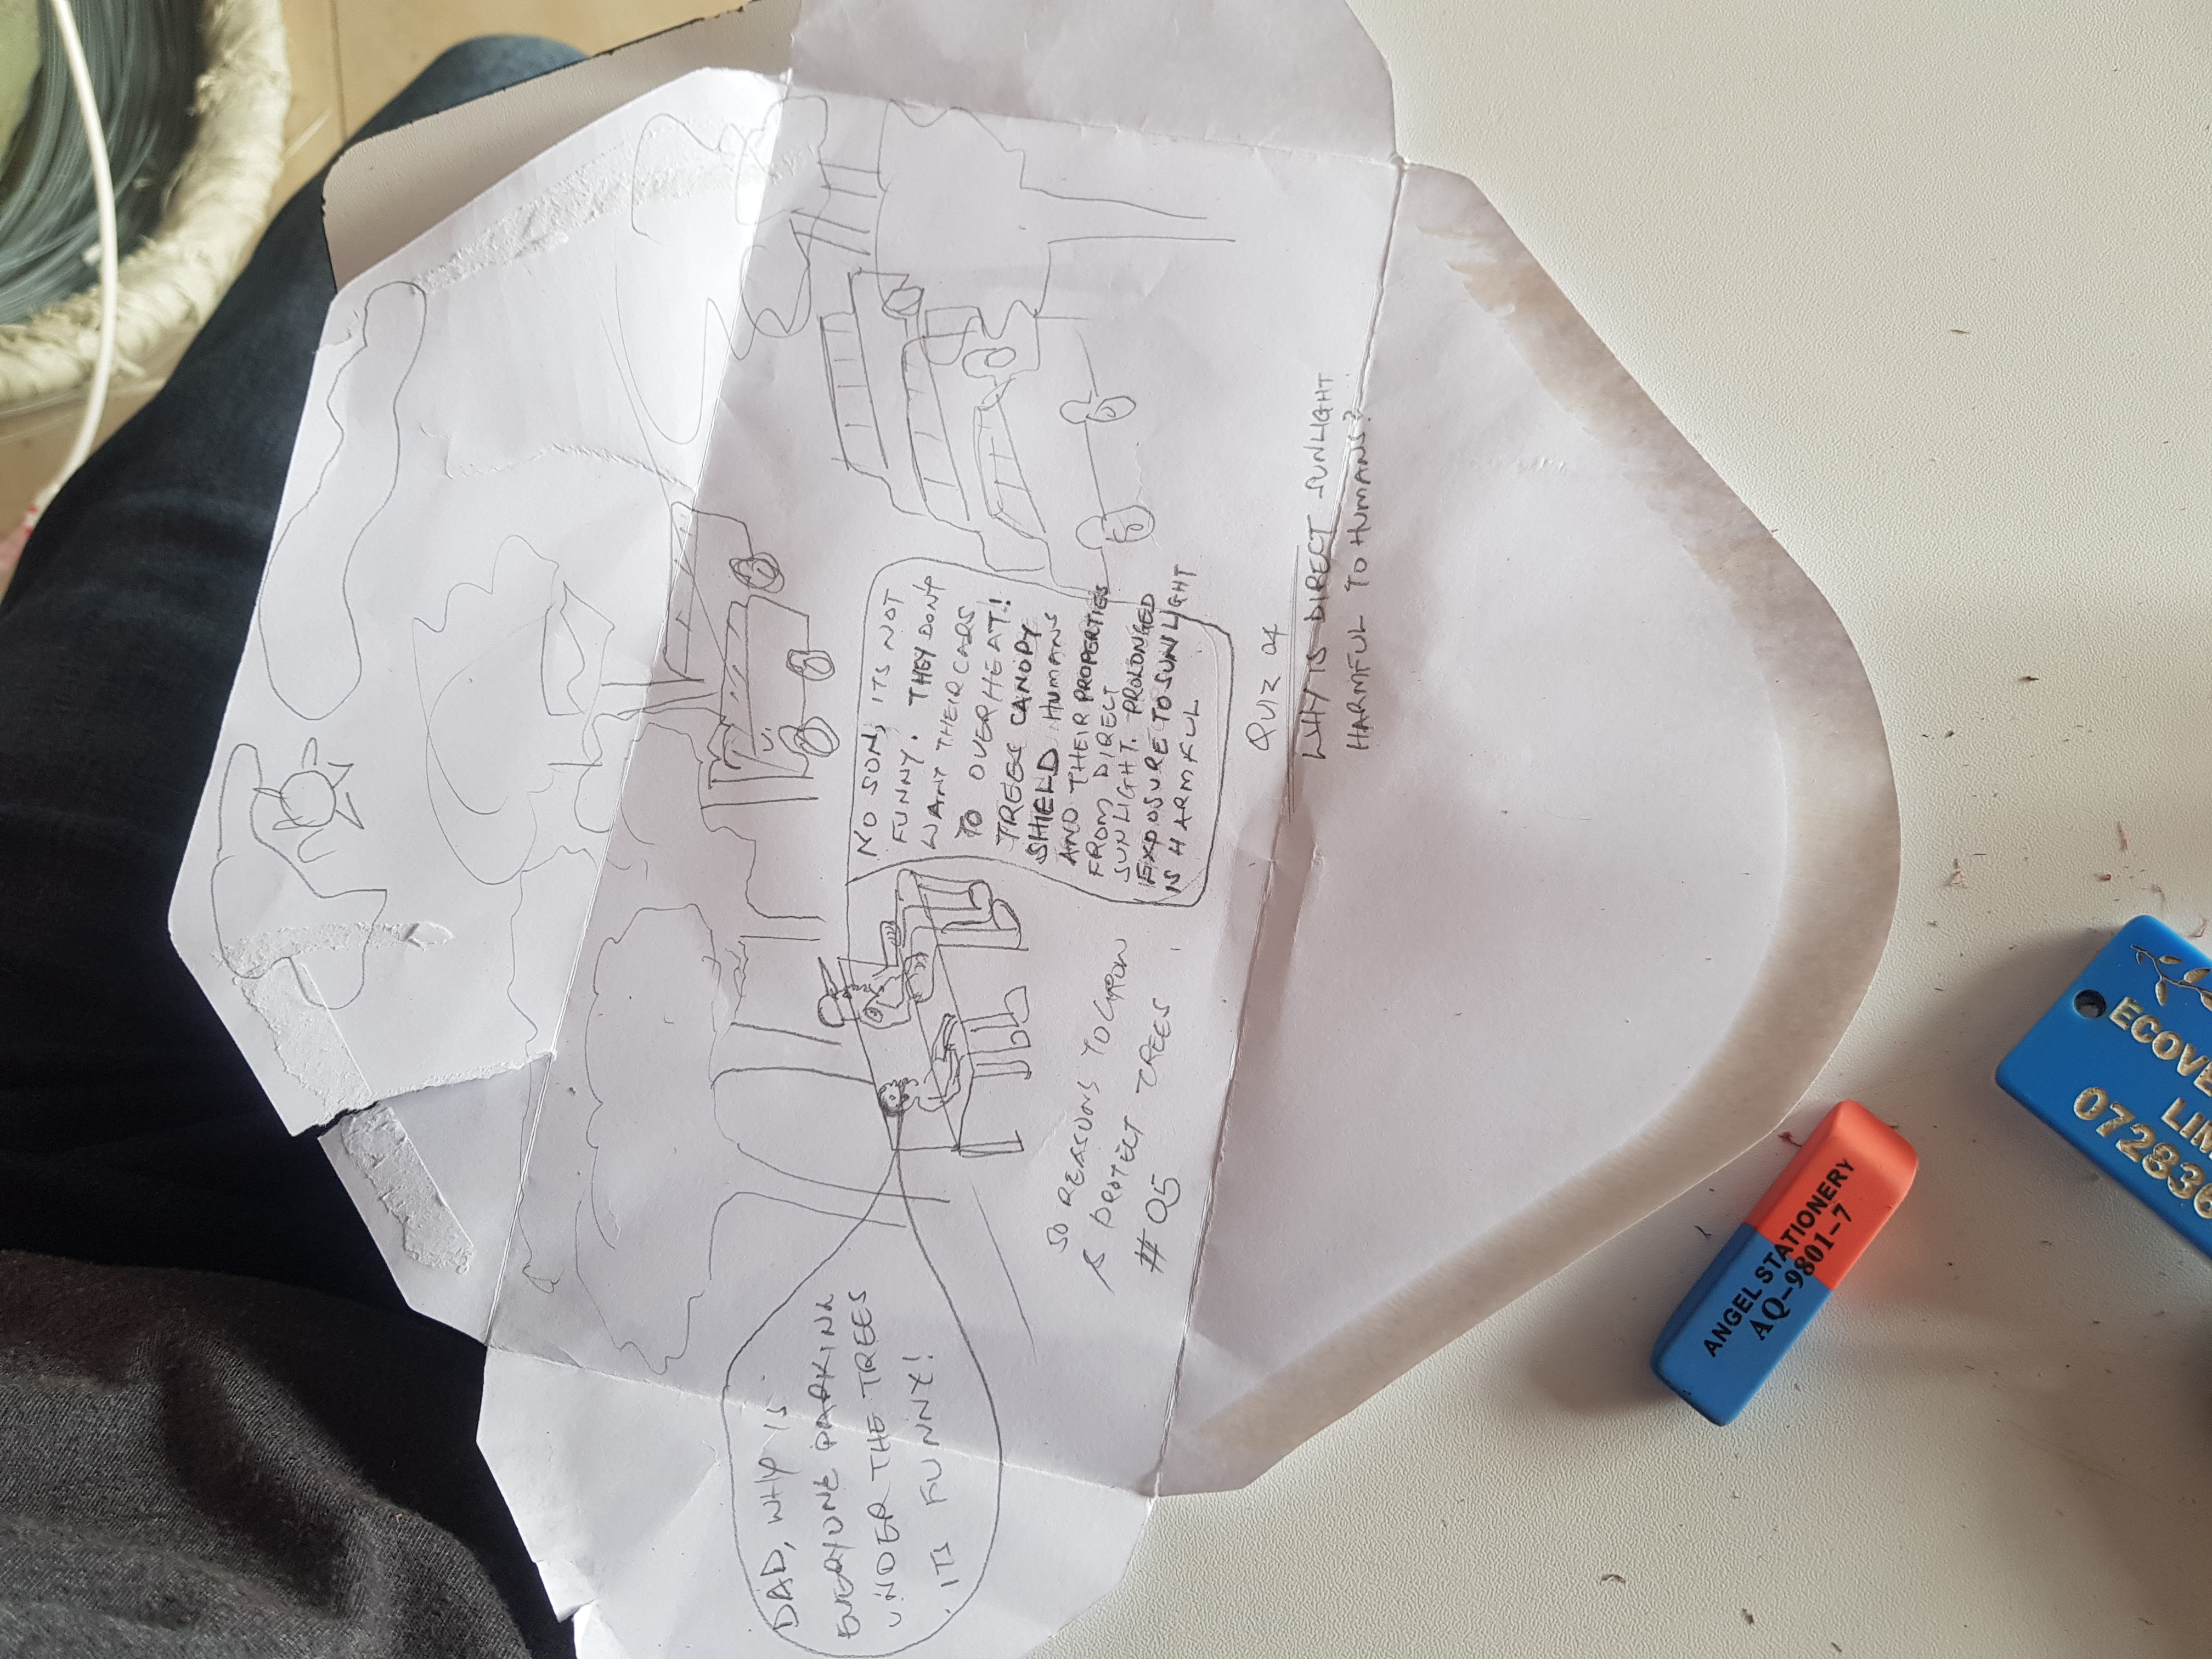 DAD, WHY IS
EVERYONE PARKING
UNDER THE TREES
ITS FUNNY!
NO SON, ITS NOT
FUNNY. THEY DON'T
WANT THEIR CARS
TO OVERHEAT!
TREES CANOPY
SHIELD HUMANS
AND THEIR PROPERTIES
FROM DIRECT
SUNLIGHT. PROLONGED
EXPOSURE TO SUNLIGHT
IS HARMFUL
50 REASONS TO GROW
& PROTECT TREES
# 05
QUIZ 04
WHY IS DIRECT SUNLIGHT
HARMFUL TO HUMANS?
ANGEL STATIONERY
AQ-9801-7
ECOVE
LIM
072836